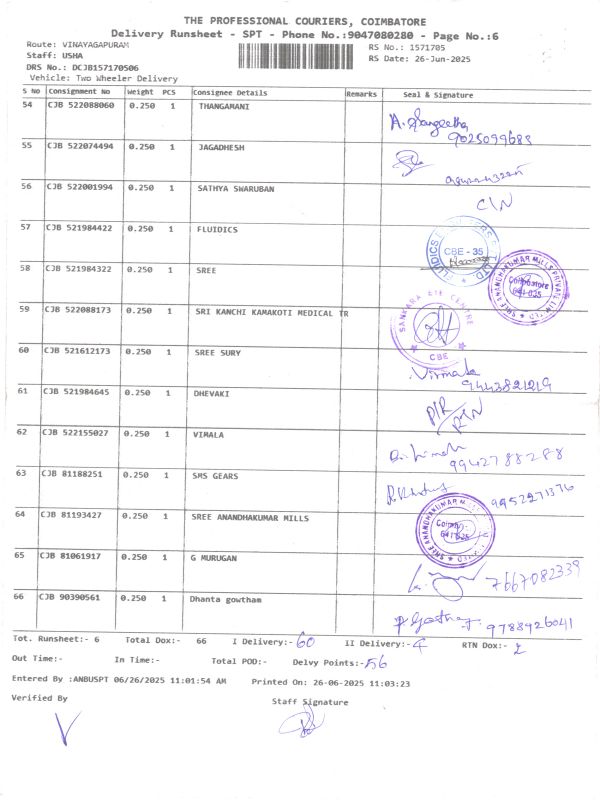 THE PROFESSIONAL COURIERS, COIMBATORE
Delivery Runsheet - SPT - Phone No.:9047080280 - Page No.:6
Route: VINAYAGAPURAM RS No.: 1571705
Staff: USHA RS Date: 26-Jun-2025
DRS No.: DCJB157170506
Vehicle: Two Wheeler Delivery
S No Consignment No Weight PCS Consignee Details Remarks Seal & Signature
54 CJB 522088060 0.250 1 THANGAMANI A. Sangeetha
9025099688
55 CJB 522074494 0.250 1 JAGADHESH
56 CJB 522001994 0.250 1 SATHYA SWARUBAN C/N
57 CJB 521984422 0.250 1 FLUIDICS CBE - 35
58 CJB 521984322 0.250 1 SREE SREE ANANDHAKUMAR MILLS PRIVATE LIMITED Coimbatore 641 035
59 CJB 522088173 0.250 1 SRI KANCHI KAMAKOTI MEDICAL TR SANKARA EYE CENTRE CBE
60 CJB 521612173 0.250 1 SREE SURY Virmala
9443821219
61 CJB 521984645 0.250 1 DHEVAKI D/R
RTN
62 CJB 522155027 0.250 1 VIMALA
9942788288
63 CJB 81188251 0.250 1 SMS GEARS 9952271376
64 CJB 81193427 0.250 1 SREE ANANDHAKUMAR MILLS SREE ANANDHAKUMAR MILLS
65 CJB 81061917 0.250 1 G MURUGAN 7667082339
66 CJB 90390561 0.250 1 Dhanta gowtham 9788926041
Tot. Runsheet:- 6 Total Dox:- 66 I Delivery:- 60 II Delivery:- 4 RTN Dox:- 2
Out Time:- In Time:- Total POD:- Delvy Points:- 56
Entered By :ANBUSPT 06/26/2025 11:01:54 AM Printed On: 26-06-2025 11:03:23
Verified By Staff Signature